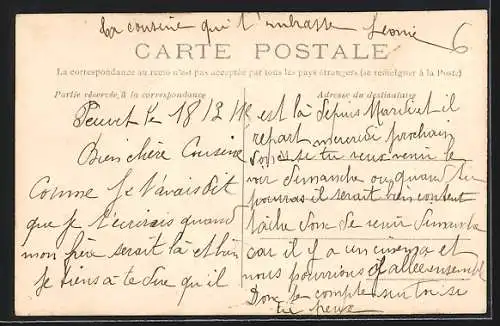 La cousine qui t'embrasse Leonie
6
CARTE POSTALE
La correspondance au recto n'est pas acceptée par tous les pays étrangers (se renseigner à la Poste)
Partie réservée à la correspondance
Adresse du destinataire
le 18 12
Bien chère Cousine
Comme je t'avais dit
que je t'écrirais quand
mon frère serait là et bien
je tiens à te dire qu'il
est là depuis Mardi et il
repart mercredi prochain
donc si tu veux venir le
voir dimanche ou quand tu
pourras il serait bien content
tâche donc de venir dimanche
car il y a un cinema et
nous pourrions y aller ensemble
Donc je compte sur toi si
tu peux